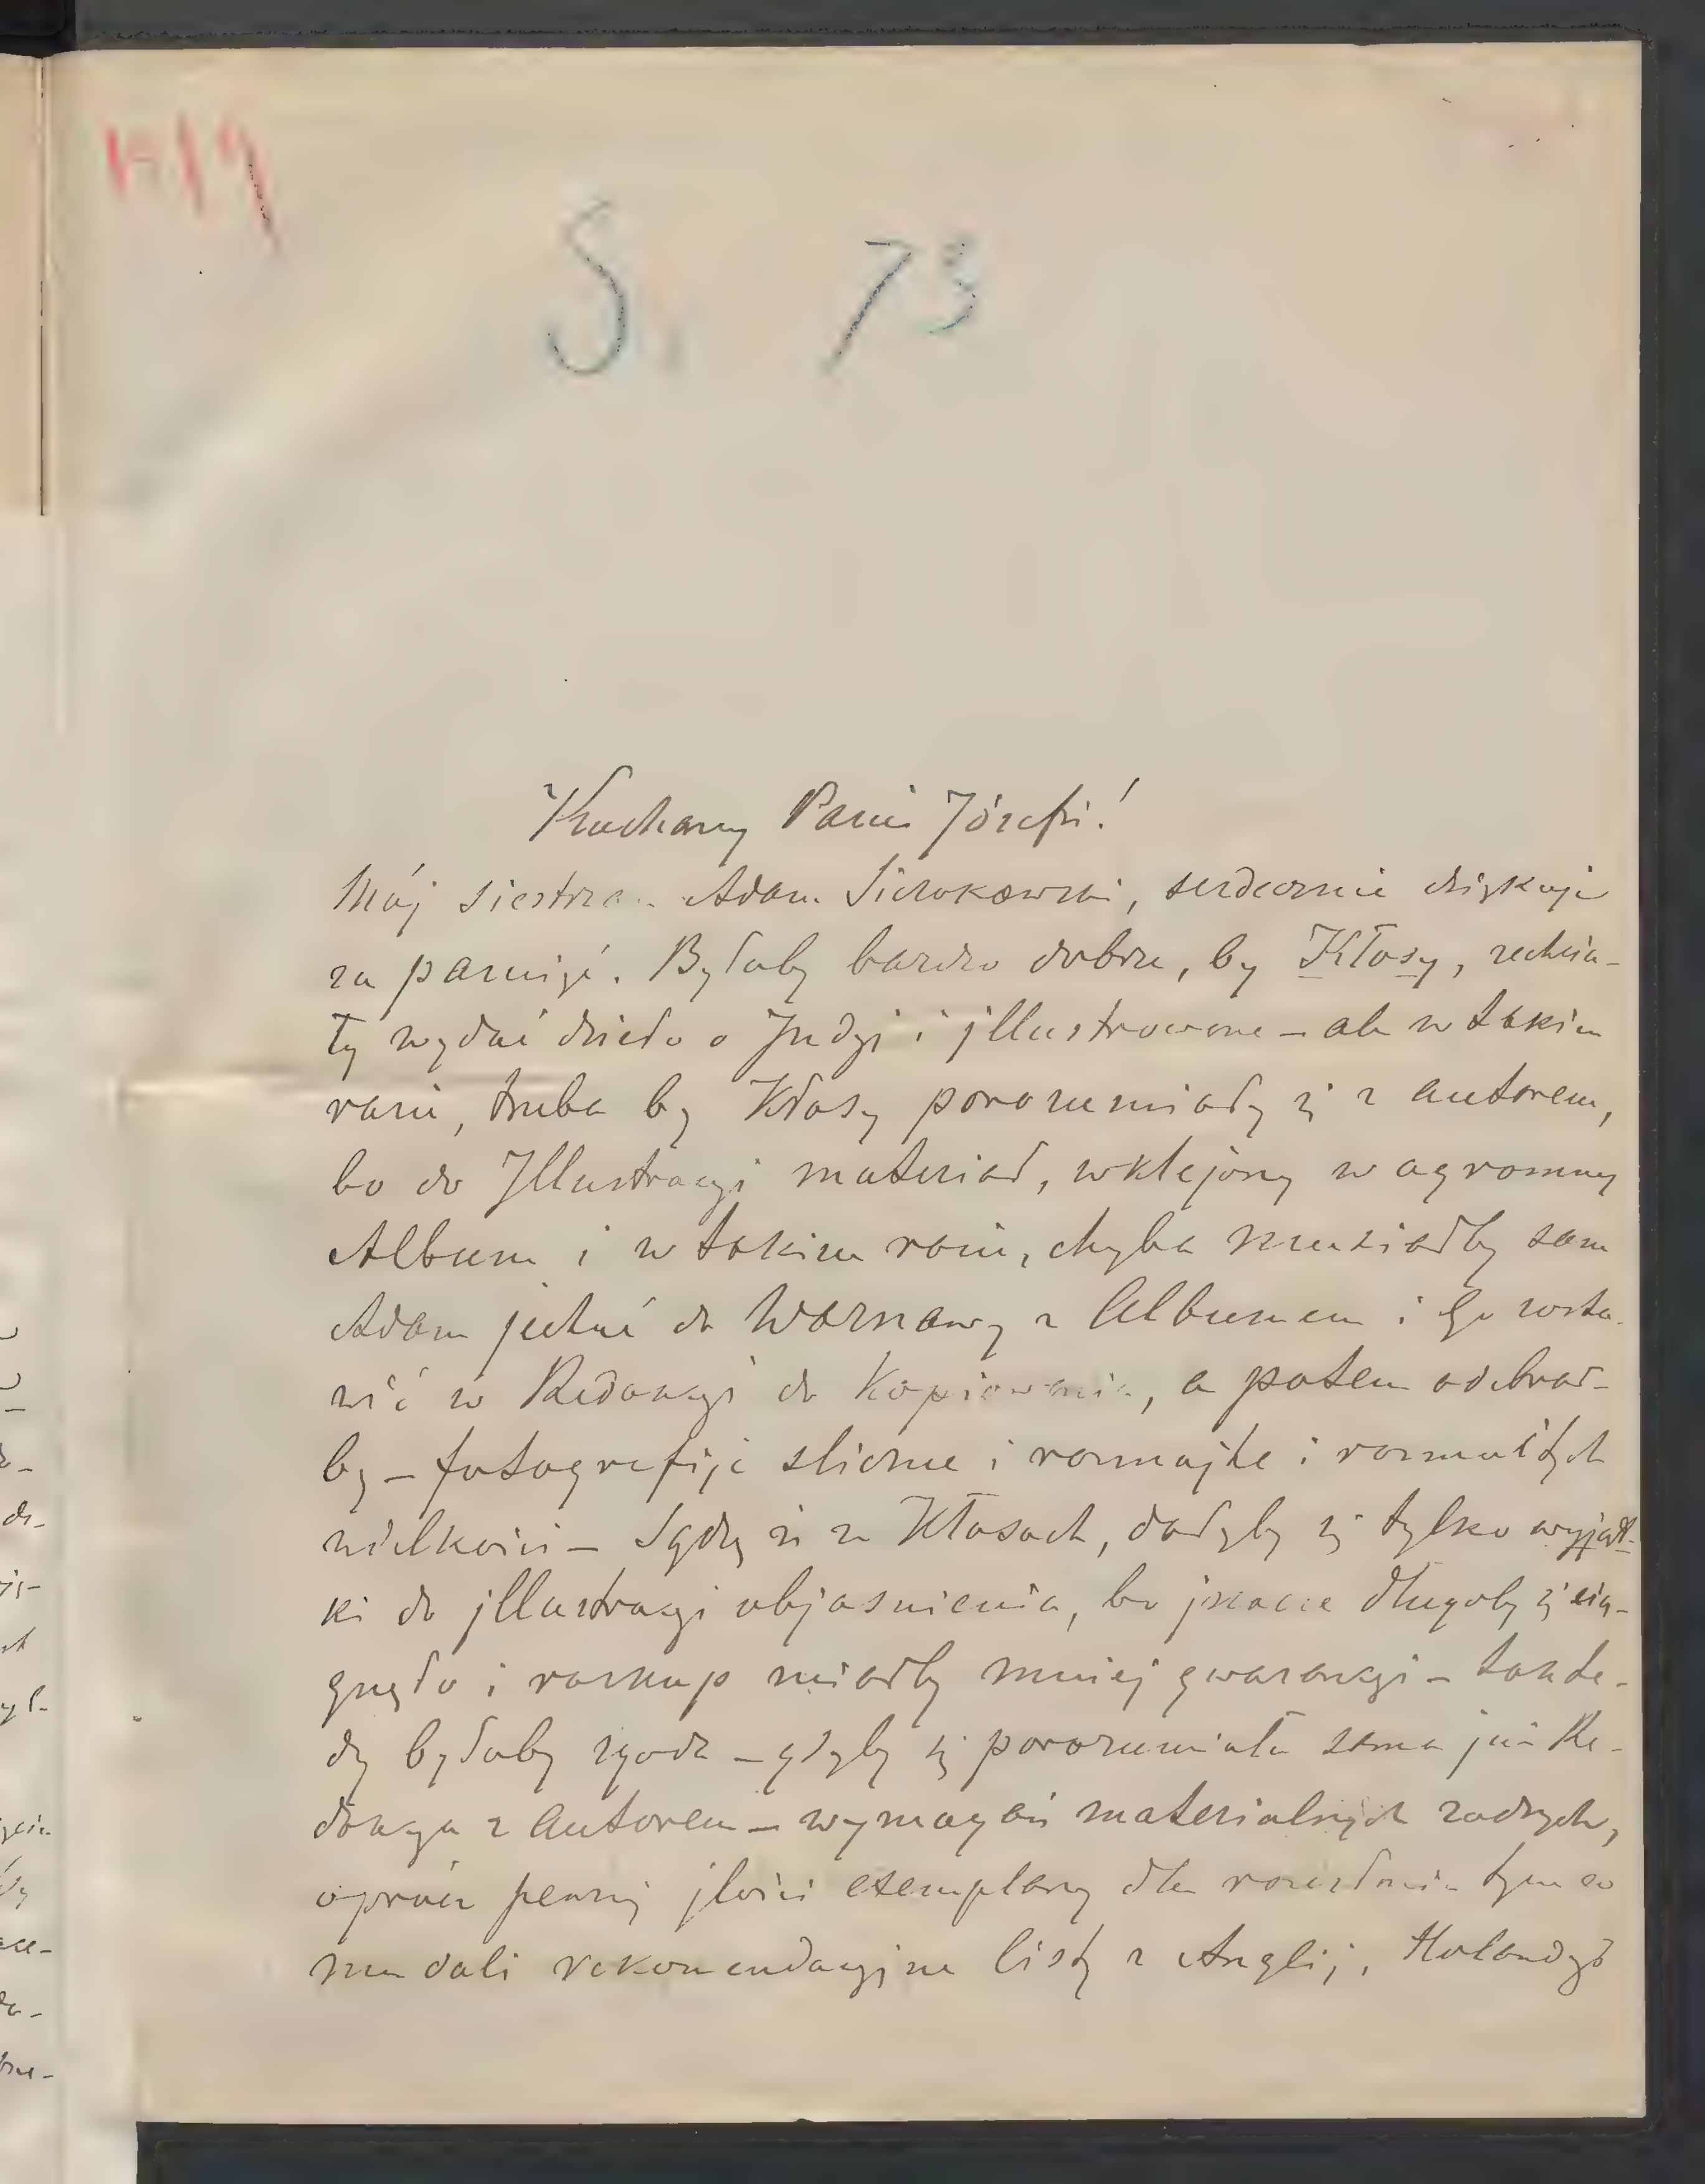 S. 73
Kochany Panie Józefie!
Mój siostrzan Adam Sierakowski, serdecznie dziękuje
za pamięć. Byłoby bardzo dobrze, by Kłosy, zechcia-
ły wydać dzieło o Indyi i jllustrowane – ale w takim
razie, trzeba by Kłosy porozumiały się z autorem,
bo do Jllustracyi materiał, wklejony w ogromny
Album i w takim razie, chyba musiałby sam
Adam jechać do Warszawy z Albumem i go zosta-
wić w Redakcyi do kopiowania, a potem odebrał-
by – fotografije śliczne i rozmajte i rozmaitych
wielkości – Sądzę że w Kłosach, dałyby się tylko wyjąt-
ki do jllustracyi objasnienia, bo jnacze długoby się cią-
gnęło i rozkup miałby mniej gwarancyi – tak te-
dy byłaby zgoda – gdyby się porozumiała sama już Re-
dakcya z autorem – wymagań materialnych żadnych,
oprócz pewnej jlości exemplarzy dla rozesłania tym co
mu dali rekomendacyjne listy z Anglij, Holandyi